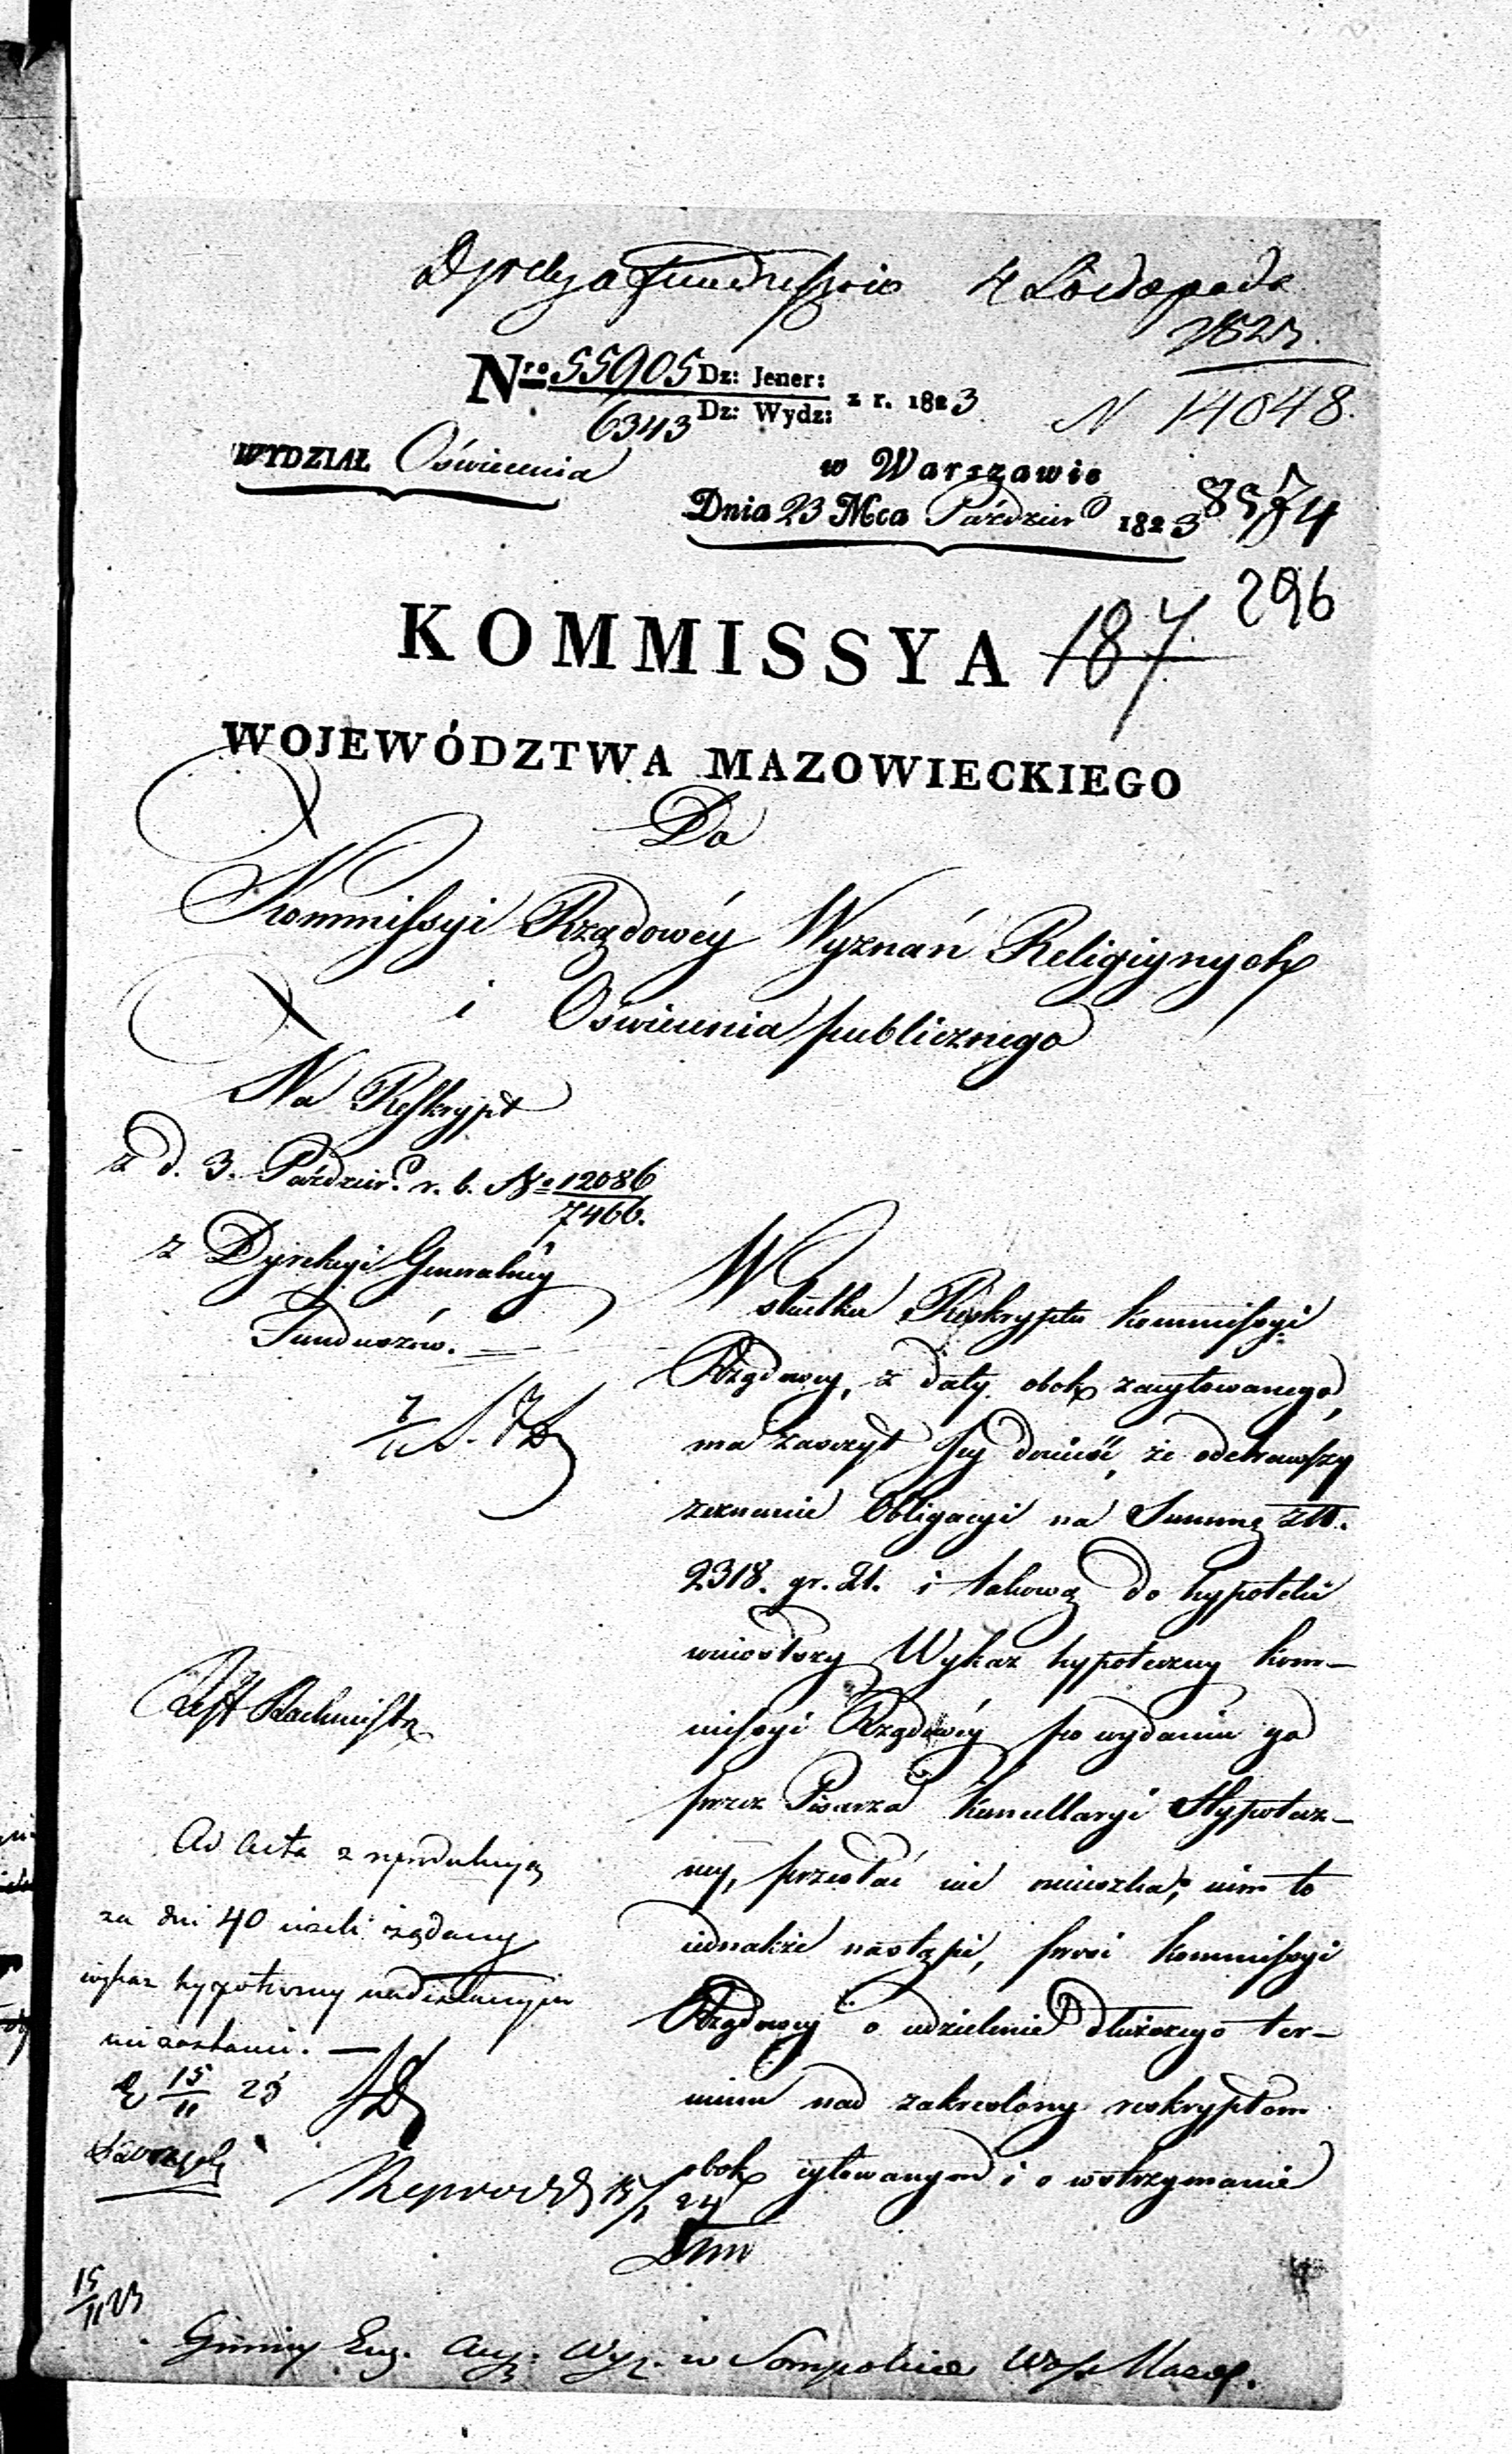 Dyrekcya Funduszów 4 Listopada
1823.
Nro 55905 Dz: Jener:
6343 Dz: Wydz: z r. 1823
N 14048.
WYDZIAŁ Oświecenia
w Warszawie
Dnia 23 Mca Paździer 1823
8574
296
187
KOMMISSYA
WOJEWÓDZTWA MAZOWIECKIEGO
Do
Kommissyi Rządowéy Wyznań Religiynych
i Oświecenia publicznego
Na Reskrypt
z d. 3. Paździer. r. b. No 12086
7466.
z Dyrekcyi Generalnéy
Funduszów.
W skutku Reskryptu Kommissyi
Rządowey, z daty obok zacytowanego,
ma zaszczyt Jey donieść, że odebrawszy
zeznanie Obligacyi na Summę złł.
2318. gr. 21. i takową do hypoteki
wniósłszy Wykaz hypoteczny Kom-
missyi Rządowéy po wydaniu go
przez Pisarza Kancellaryi Hypotecz-
ney, przesłać nie omieszka; nim to
iednakże nastąpi, prosi Kommissyi
Rządowey o udzielenie dłuższego ter-
minu nad zakreślony reskryptem
obok cytowanym i o wstrzymanie
7/11
Rachmistrz
Ad acta z reprodukcyą
za dni 40 ieżeli żądany
wykaz hypoteczny nadesłanym
nie zostanie.
15/11 23
Reprod 15/1 24
15/11 23
Gminy Ew. Aug. Wyz. w Sompolnie Woj. Mazow.